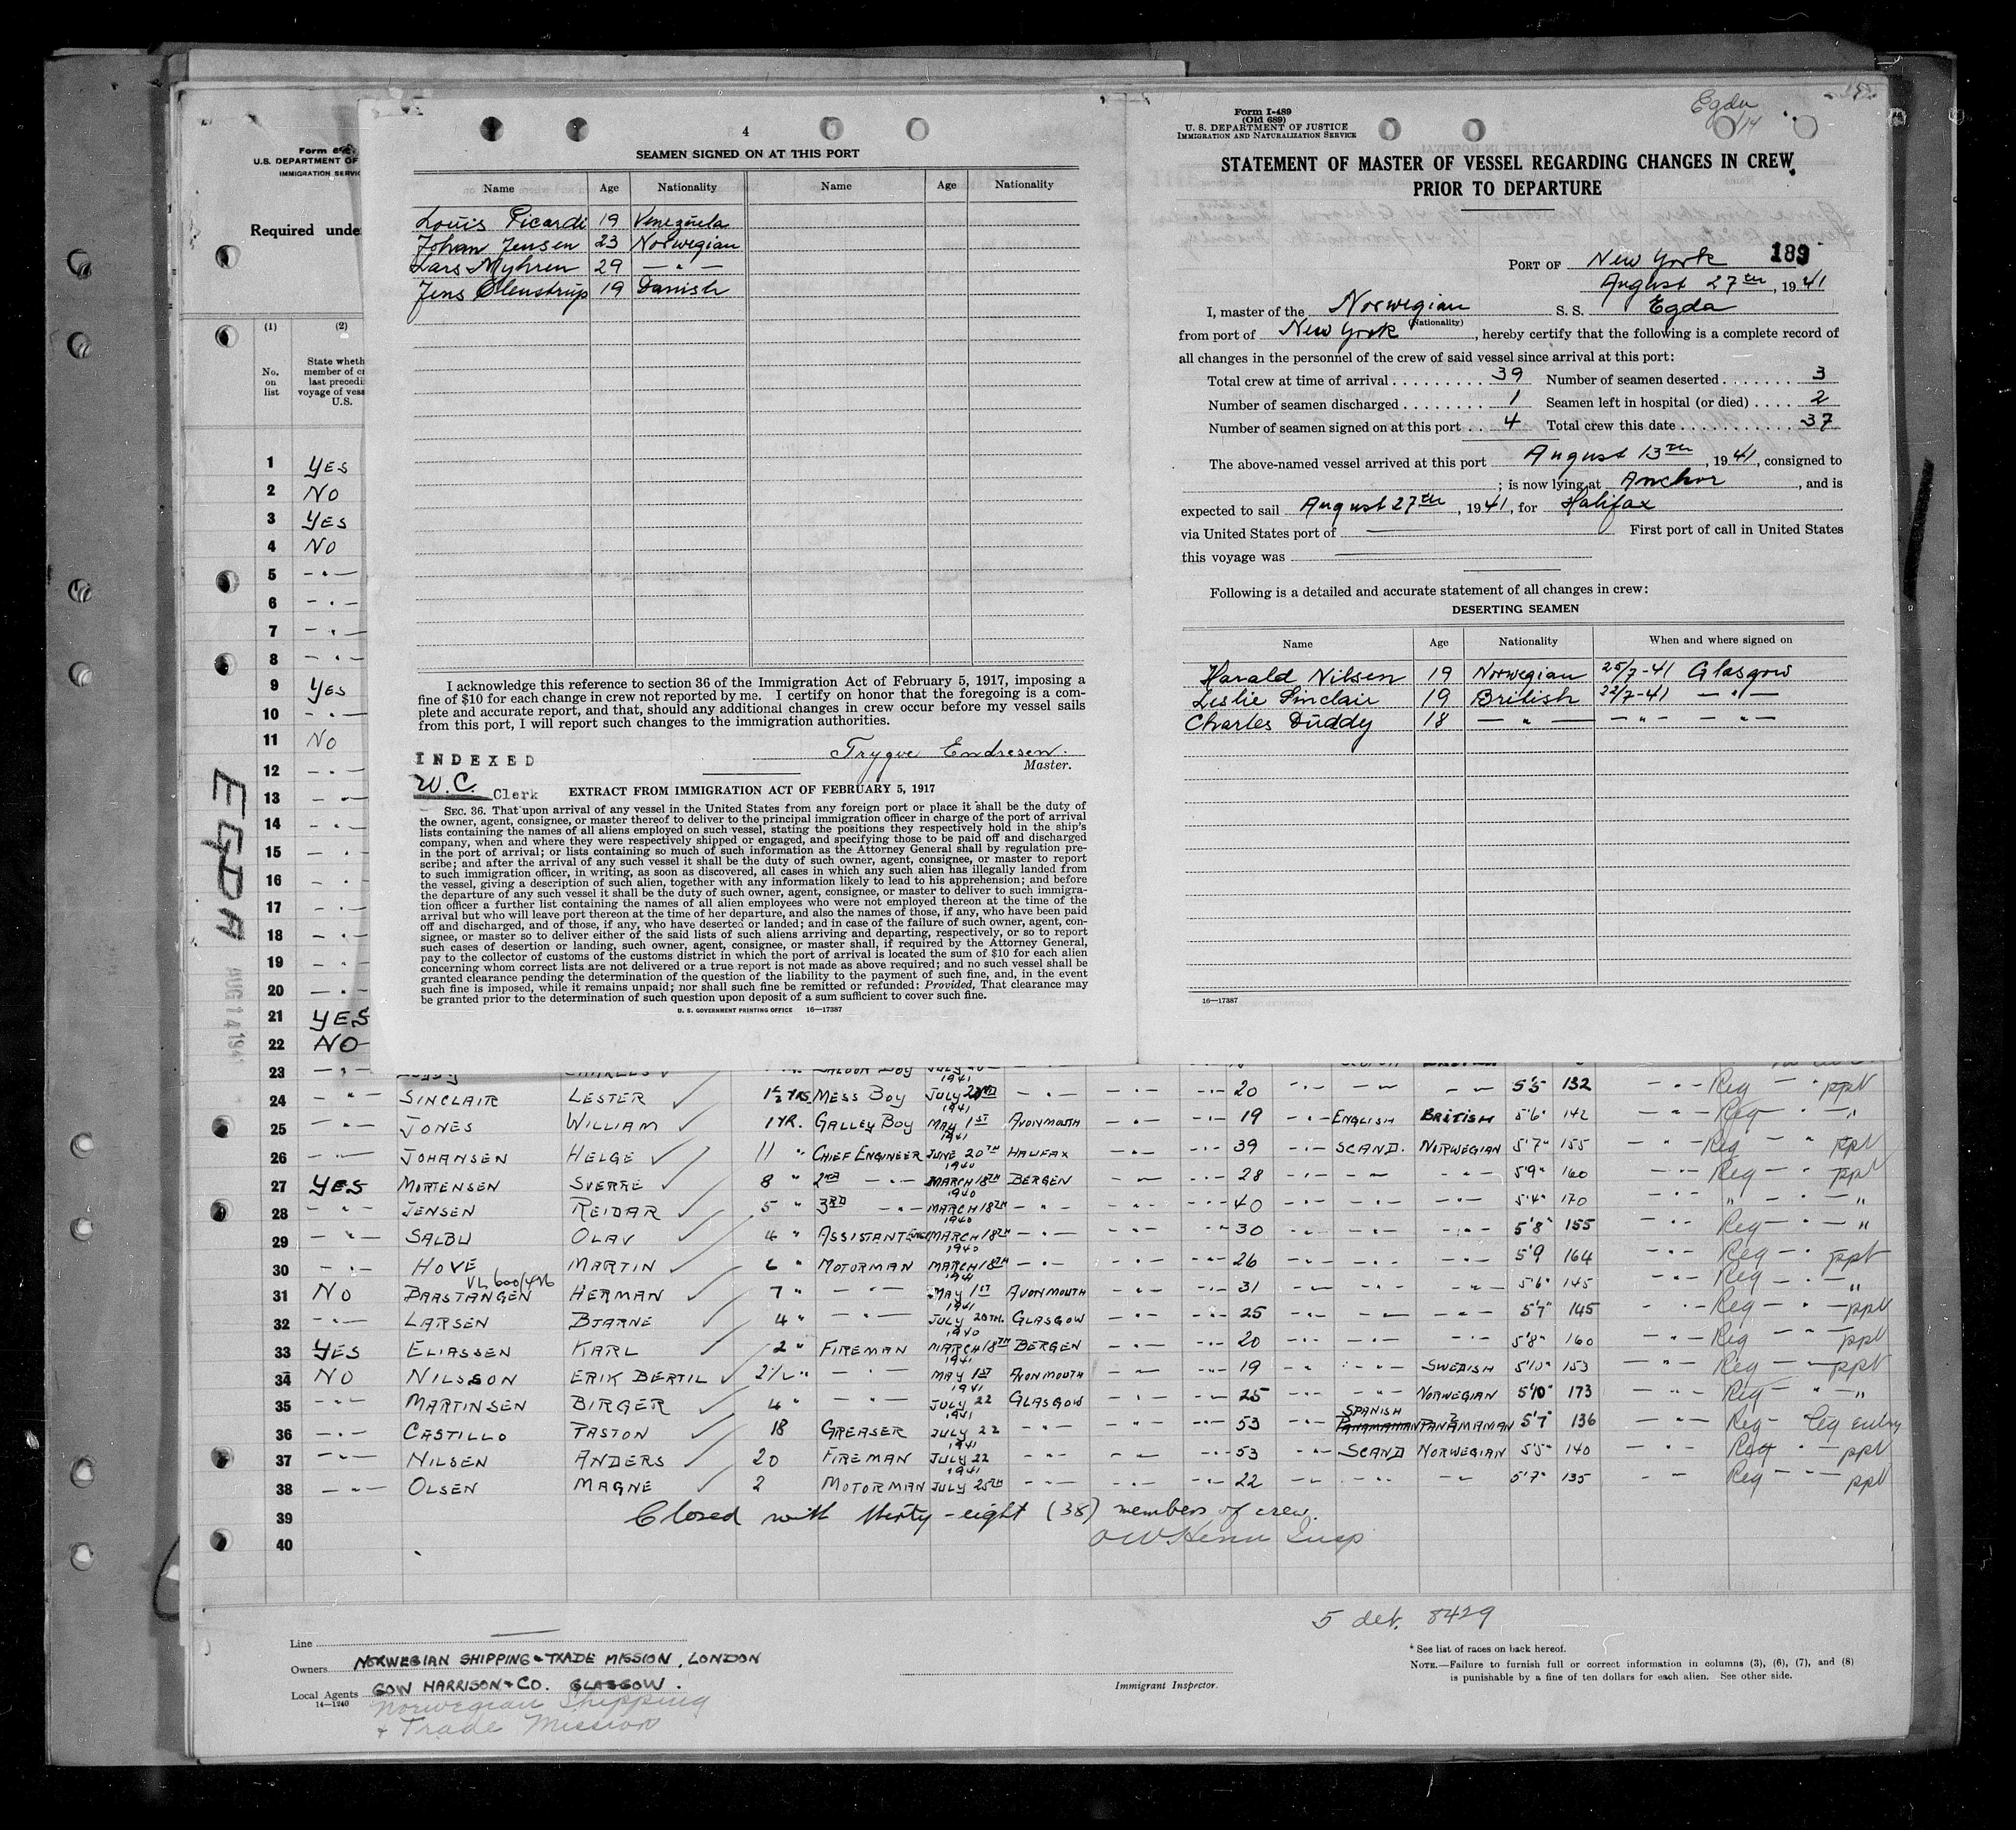 Form 689
U. S. DEPARTMENT OF
IMMIGRATION SERVIC
Required unde
(1) (2)
No. on list
State wheth
member of cr
last precedi
voyage of vess
U.S.
1 YES
2 NO
3 YES
4 NO
5 — " —
6 — " —
7 — " —
8 — " —
9 YES
10 — " —
11 NO
12 — " —
13 — " —
14 — " —
15 — " —
16 — " —
17 — " —
18 — " —
19 — " —
20 — " —
21 YES
22 NO
EGDA
AUG 14 194
4
SEAMEN SIGNED ON AT THIS PORT
Name Age Nationality Name Age Nationality
Louis Picardi 19 Venezuela
Johan Jensen 23 Norwegian
Lars Myhren 29 — " —
Jens Olenstrup 19 Danish
I acknowledge this reference to section 36 of the Immigration Act of February 5, 1917, imposing a
fine of $10 for each change in crew not reported by me. I certify on honor that the foregoing is a com-
plete and accurate report, and that, should any additional changes in crew occur before my vessel sails
from this port, I will report such changes to the immigration authorities.
Trygve Endresen.
Master.
INDEXED
W. C. Clerk
EXTRACT FROM IMMIGRATION ACT OF FEBRUARY 5, 1917
SEC. 36. That upon arrival of any vessel in the United States from any foreign port or place it shall be the duty of
the owner, agent, consignee, or master thereof to deliver to the principal immigration officer in charge of the port of arrival
lists containing the names of all aliens employed on such vessel, stating the positions they respectively hold in the ship's
company, when and where they were respectively shipped or engaged, and specifying those to be paid off and discharged
in the port of arrival; or lists containing so much of such information as the Attorney General shall by regulation pre-
scribe; and after the arrival of any such vessel it shall be the duty of such owner, agent, consignee, or master to report
to such immigration officer, in writing, as soon as discovered, all cases in which any such alien has illegally landed from
the vessel, giving a description of such alien, together with any information likely to lead to his apprehension; and before
the departure of any such vessel it shall be the duty of such owner, agent, consignee, or master to deliver to such immigra-
tion officer a further list containing the names of all alien employees who were not employed thereon at the time of the
arrival but who will leave port thereon at the time of her departure, and also the names of those, if any, who have been paid
off and discharged, and of those, if any, who have deserted or landed; and in case of the failure of such owner, agent, con-
signee, or master so to deliver either of the said lists of such aliens arriving and departing, respectively, or so to report
such cases of desertion or landing, such owner, agent, consignee, or master shall, if required by the Attorney General,
pay to the collector of customs of the customs district in which the port of arrival is located the sum of $10 for each alien
concerning whom correct lists are not delivered or a true report is not made as above required; and no such vessel shall be
granted clearance pending the determination of the question of the liability to the payment of such fine, and, in the event
such fine is imposed, while it remains unpaid; nor shall such fine be remitted or refunded: Provided, That clearance may
be granted prior to the determination of such question upon deposit of a sum sufficient to cover such fine.
U. S. GOVERNMENT PRINTING OFFICE 16—17387
Form I-489
(Old 689)
U. S. DEPARTMENT OF JUSTICE
IMMIGRATION AND NATURALIZATION SERVICE
Egda
14
STATEMENT OF MASTER OF VESSEL REGARDING CHANGES IN CREW
PRIOR TO DEPARTURE
PORT OF New York 189
August 27th, 1941
I, master of the Norwegian S. S. Egda
(Nationality)
from port of New York, hereby certify that the following is a complete record of
all changes in the personnel of the crew of said vessel since arrival at this port:
Total crew at time of arrival 39 Number of seamen deserted 3
Number of seamen discharged 1 Seamen left in hospital (or died) 2
Number of seamen signed on at this port 4 Total crew this date 37
The above-named vessel arrived at this port August 13th, 1941, consigned to
; is now lying at Anchor, and is
expected to sail August 27th, 1941, for Halifax
via United States port of — First port of call in United States
this voyage was —
Following is a detailed and accurate statement of all changes in crew:
DESERTING SEAMEN
Name Age Nationality When and where signed on
Harald Nilsen 19 Norwegian 25/7-41 Glasgow
Leslie Sinclair 19 British 22/7-41 — " —
Charles Duddy 18 — " — — " — — " —
16—17387
23 — " — CHARLES SALOON BOY JULY 1941
24 — " — SINCLAIR LESTER 1½ YRS. MESS BOY JULY 22ND 1941 — " — — " — — " — 20 — " — — " — — " — 5'5 132 — " — Reg — " ppt
25 — " — JONES WILLIAM 1 YR. GALLEY BOY MAY 1ST 1941 AVONMOUTH — " — — " — 19 — " — ENGLISH BRITISH 5'6" 142 — " — Reg — " — "
26 — " — JOHANSEN HELGE 11 " CHIEF ENGINEER JUNE 20TH 1940 HALIFAX — " — — " — 39 — " — SCAND. NORWEGIAN 5'7" 155 — " — Reg — " ppt
27 YES MORTENSEN SVERRE 8 " 2ND — " — MARCH 18TH 1940 BERGEN — " — — " — 28 — " — — " — — " — 5'9" 160 — " — Reg — " — ppt
28 — " — JENSEN REIDAR 5 " 3RD — " — MARCH 18TH 1940 — " — — " — — " — 40 — " — — " — — " — 5'4" 170 — " — " — " — "
29 — " — SALBU OLAV 4 " ASSISTANT ENG. MARCH 18TH 1940 — " — — " — — " — 30 — " — — " — — " — 5'8" 155 — " — Reg — " — "
30 — " — HOVE MARTIN 6 " MOTORMAN MARCH 18TH 1941 — " — — " — — " — 26 — " — — " — — " — 5'9 164 — " — Reg — " ppt
31 NO BAASTANGEN HERMAN 7 " — " — MAY 1ST 1941 AVONMOUTH — " — — " — 31 — " — — " — — " — 5'6" 145 — " — Reg — " — "
32 — " — LARSEN BJARNE 4 " — " — JULY 20TH. 1940 GLASGOW — " — — " — 25 — " — — " — — " — 5'7" 145 — " — Reg — " — ppt
33 YES ELIASSEN KARL 2 " FIREMAN MARCH 18TH 1941 BERGEN — " — — " — 20 — " — — " — — " — 5'8" 160 — " — Reg — " — ppt
34 NO NILSSON ERIK BERTIL 2½ " — " — MAY 1ST 1941 AVONMOUTH — " — — " — 19 — " — — " — SWEDISH 5'10" 153 — " — Reg — " — ppt
35 — " — MARTINSEN BIRGER 4 " — " — JULY 22 1941 GLASGOW — " — — " — 25 — " — — " — NORWEGIAN 5'10" 173 — " — Reg — " — "
36 — " — CASTILLO PASTON 18 GREASER JULY 22 1941 — " — — " — — " — 53 — " — SPANISH PANAMANIAN PANAMAMAN 5'7" 136 — " — Reg — leg entry
37 — " — NILSEN ANDERS 20 FIREMAN JULY 22 1941 — " — — " — — " — 53 — " — SCAND NORWEGIAN 5'5" 140 — " — Reg — " — ppt
38 — " — OLSEN MAGNE 2 MOTORMAN JULY 25TH — " — — " — — " — 22 — " — — " — — " — 5'7" 135 — " — Reg — " — ppt
39 Closed with thirty-eight (38) members of crew.
40
5 det. 8429
Line —
Owners NORWEGIAN SHIPPING & TRADE MISSION, LONDON
Local Agents GOW HARRISON & CO. GLASGOW.
14—1240
Norwegian Shipping
& Trade Mission
Immigrant Inspector.
* See list of races on back hereof.
NOTE.—Failure to furnish full or correct information in columns (3), (6), (7), and (8)
is punishable by a fine of ten dollars for each alien. See other side.